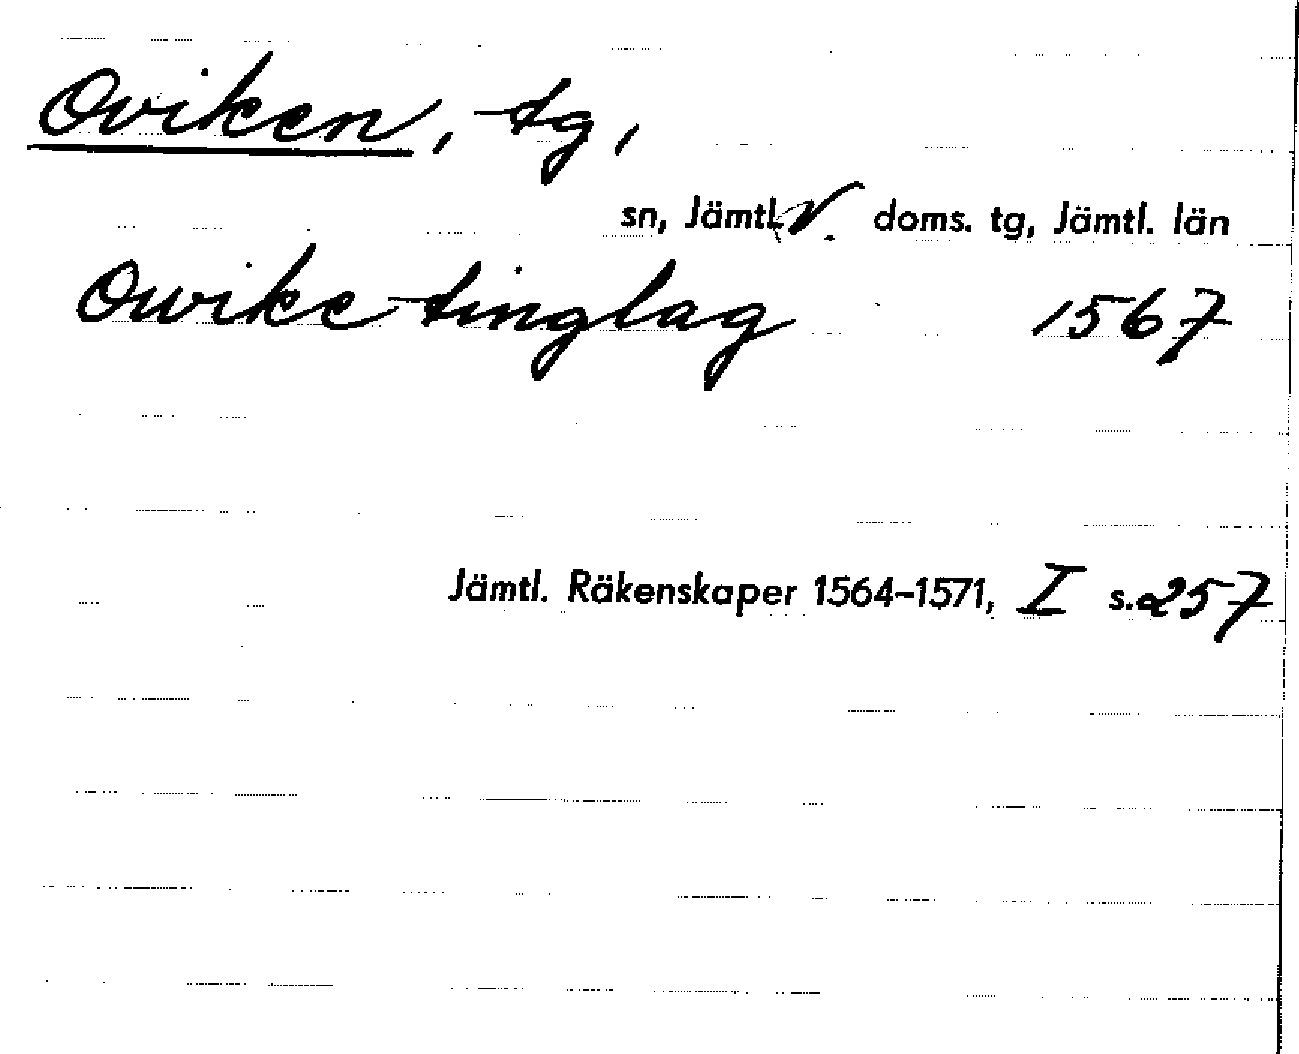 Oviken, tg,
sn, Jämtl. V. doms. tg, Jämtl. län
Owike tinglag 1567
Jämtl. Räkenskaper 1564-1571, I s. 257